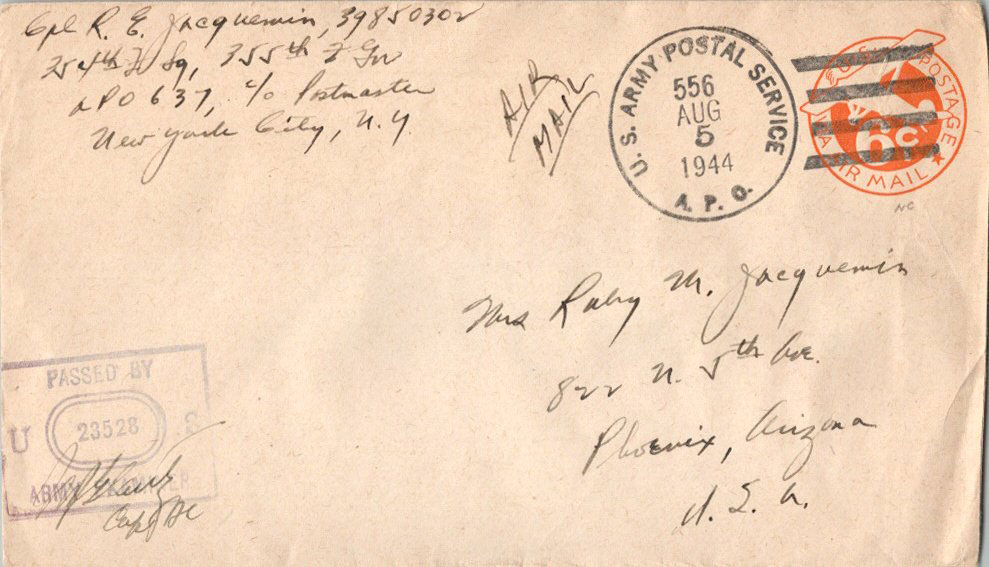 Cpl R. E. Jacquemin, 39850302
354th F Sq, 355th F Gr
APO 637, c/o Postmaster
New York City, N.Y.
AIR
MAIL
U.S. ARMY POSTAL SERVICE
556
AUG
5
1944
A. P. O.
U.S. POSTAGE
6c
VIA AIR MAIL
NC
Mrs Ruby M. Jacquemin
822 N. 5th Ave.
Phoenix, Arizona
U. S. A.
PASSED BY
U 23528 S
ARMY EXAMINER
Capt